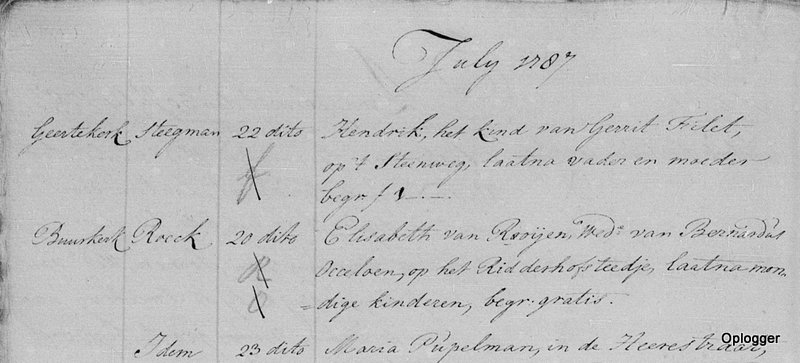 July 1787
Geertekerk Steegman 22 dito Hendrik, het kind van Gerrit Filet,
op 't Steenweg, laat na vader en moeder
begr f 1 -.-
Buurkerk Roeck 20 dito Elisabeth van Rooijen, Wed.e van Bernardus
Occeloen, op het Ridderhofsteedje, laat na mon-
dige kinderen, begr. gratis.
Idem 23 dito Maria Pupelman, in de Heerestraat,
Oplogger